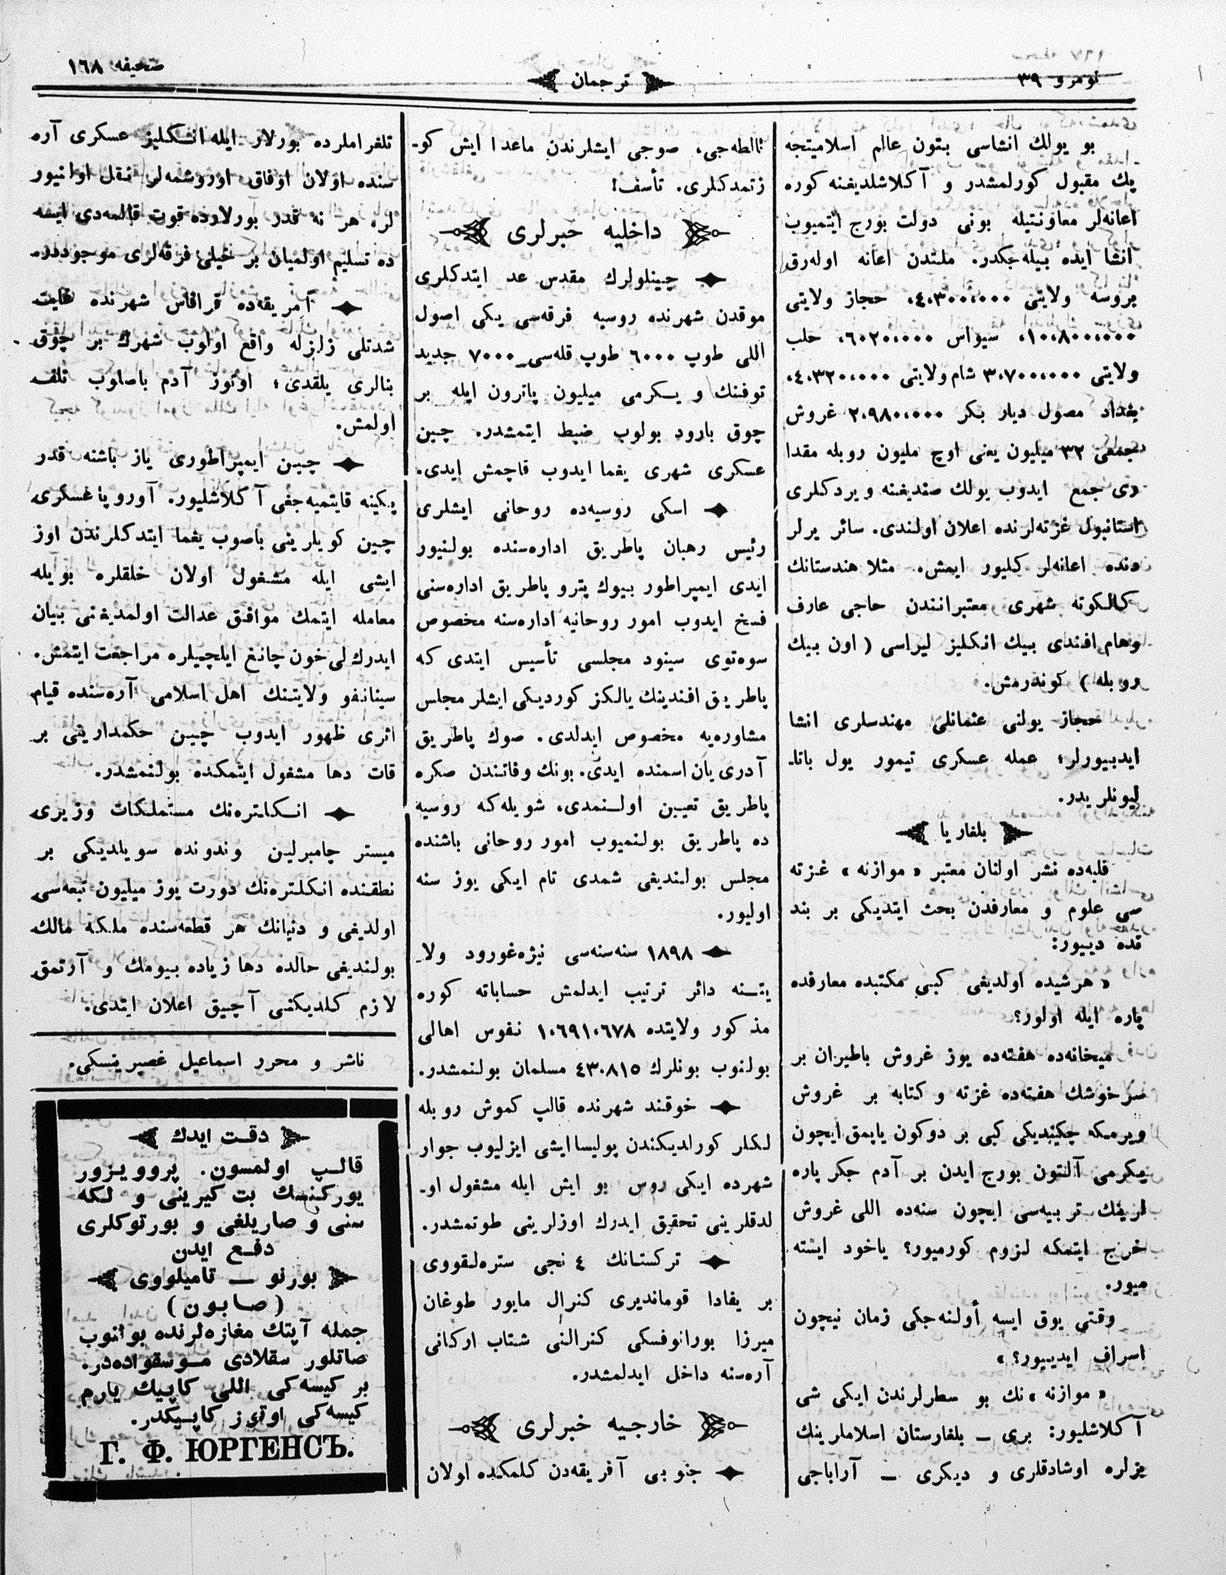 نومرو ٣٩
ترجمان
صحیفه ١٦٨
بو یولك انشاسی بتون عالم اسلامیتجه
پك مقبول كورلمشدر و آكلاشلدیغنه كوره
اعانه‌لر معاونتیله بونی دولت بورج ایتمیوب
انشا ایده بیله‌جكدر. ملتدن اعانه اوله‌رق
بروسه ولایتی ٤،٣٠٠،٠٠٠، حجاز ولایتی
١٠،٨٠٠،٠٠٠، سیواس ٦،٠٢٠،٠٠٠، حلب
ولایتی ٣،٧٠٠،٠٠٠ شام ولایتی ٤،٣٢٠،٠٠٠،
بغداد مصول دیار بكر ٢،٩٨٠،٠٠٠ غروش
جمعی ٣٢ میلیون یعنی اوچ ملیون روبله مقدا
ری جمع ایدوب یولك صندیغنه ویردكلری
استانبول غزته‌لرنده اعلان اولندی. سائر یرلر
دنده اعانه‌لر كلیور ایمش. مثلا هندستانك
كالكوته شهری معتبرانندن حاجی عارف
وهام افندی بیك انكلیز لیراسی ( اون بیك
روبله ) كوندرمش.
حجاز یولنی عثمانلی مهندسلری انشا
ایدییورلر؛ عمله عسكری تیمور یول باتا-
لیونلریدر.
بلغاریا
قلبه‌ده نشر اولنان معتبر « موازنه » غزته
سی علوم و معارفدن بحث ایتدیكی بر بند
قده دییور:
« هرشیده اولدیغی كبی مكتبده معارفده
پاره ایله اولور؟
میخانه‌ده هفته‌ده یوز غروش باطیران بر
سرخوشك هفته‌ده غزته و كتابه بر غروش
ویرمكه چكیندیكی كبی بر دوكون یاپمق ایچون
یكرمی آلتون بورج ایدن بر آدم جكر پاره
لرینك تربیه‌سی ایچون سنه‌ده اللی غروش
خرج ایتمكه لزوم كورمیور؟ یاخود ایشته
میور.
وقتی یوق ایسه أولنه‌جكی زمان نیچون
اسراف ایدییور؟ »
« موازنه » نك بو سطرلرندن ایكی شی
آكلاشلیور: بری — بلغارستان اسلاملرینك
یزلره اوشادقلری و دیكری — آراباجی
ئالطه‌جی، صوجی ایشلرندن ماعدا ایش كو-
زتمدكلری. تأسف!
داخلیه خبرلری
چینلولرك مقدس عد ایتدكلری
موقدن شهرنده روسیه فرقه‌سی یكی اصول
اللی طوپ ٦٠٠٠ طوپ قله‌سی ٧٠٠٠ جدید
توفنك و یكرمی میلیون پاترون ایله بر
چوق بارود بولوب ضبط ایتمشدر. چین
عسكری شهری یغما ایدوب قاچمش ایدی.
اسكی روسیه‌ده روحانی ایشلری
رئیس رهبان پاطریق اداره‌سنده بولنیور
ایدی ایمپراطور بیوك پترو پاطریق اداره‌سنی
فسخ ایدوب امور روحانیه اداره‌سنه مخصوص
سوه‌توی سینود مجلسی تأسیس ایتدی كه
پاطریق افندینك یالكز كوردیكی ایشلر مجلس
مشاوره‌یه مخصوص ایدلدی. صوك پاطریق
آدریان اسمنده ایدی. بونك وفاتندن صكره
پاطریق تعیین اولنمدی، شویله‌كه روسیه
ده پاطریق بولنمیوب امور روحانی باشنده
مجلس بولندیغی شمدی تام ایكی یوز سنه
اولیور.
١٨٩٨ سنه‌سی نیژه‌غورود ولا-
یتنه دائر ترتیب ایدلمش حساباته كوره
مذكور ولایتده ١٠٦٩١٠٦٧٨ نفوس اهالی
بولنوب بونلرك ٤٣،٨١٥ مسلمان بولنمشدر.
خوقند شهرنده قالپ كموش روبله
لكلر كورلدیكندن پولیسا ایشی ایزلیوب جوار
شهرده ایكی روس بو ایش ایله مشغول او-
لدقلرینی تحقیق ایدرك اوزلرینی طوتمشدر.
تركستانك ٤ نجی ستره‌لقووی
بریغادا قوماندیری كنرال مایور طوغان
میرزا بورانوفسكی كنرالنی شتاب اركانی
آره‌سنه داخل ایدلمشدر.
خارجیه خبرلری
جنوبی آفریقه‌دن كلمكده اولان
تلغراملرده بورلار ایله انكلیز عسكری آره
سنده اولان اوفاق اوروشمه‌لر نقل اولنیور
لر، هر نه قدر بورلارده قوت قالمه‌دی ایسه
ده تسلیم اولمیان بر خیلی فرقه‌لری موجوددر.
آمریقه‌ده قراقاس شهرنده غایت
شدتلی زلزله واقع اولوب شهرك بر چوق
بنالری یلقدی؛ اوتوز آدم باصلوب تلف
اولمش.
چین ایمپراطوری یاز باشنه قدر
پكینه قایتمیه‌جغی آكلاشلیور. آوروپا عسكری
چین كویلرینی باصوب یغما ایتدكلرندن اوز
ایشی ایله مشغول اولان خلقلره بویله
معامله ایتمك موافق عدالت اولمدیغنی بیان
ایدرك لی خون چانغ ایلچیلره مراجعت ایتمش.
سینانفو ولایتنك اهل اسلامی آره‌سنده قیام
اثری ظهور ایدوب چین حكمدارینی بر
قات دها مشغول ایتمكده بولنمشدر.
انكلتره‌نك مستملكات وزیری
میستر چامبرلین وندونده سویلدیكی بر
نطقنده انكلتره‌نك دورت یوز میلیون تبعه‌سی
اولدیغی و دنیانك هر قطعه‌سنده ملكه مالك
بولندیغی حالده دها زیاده بیومك و آرتمق
لازم كلدیكنی آچیق اعلان ایتدی.
ناشر و محرر اسماعیل غصپرینسكی.
دقت ایدك
قالپ اولمسون. پروویزور
یوركنسك بت كیرینی و لكه
سنی و صاریلغی و بورتوكلری
دفع ایدن
بورنو — تامیلووی
( صابون )
جمله آپتك مغازه‌لرنده بولنوب
صاتلور سقلادی موسقواده‌در.
بر كیسه‌كی اللی كاپیك یارم
كیسه‌كی اوتوز كاپیكدر.
Г. Ф. ЮРГЕНСЪ.